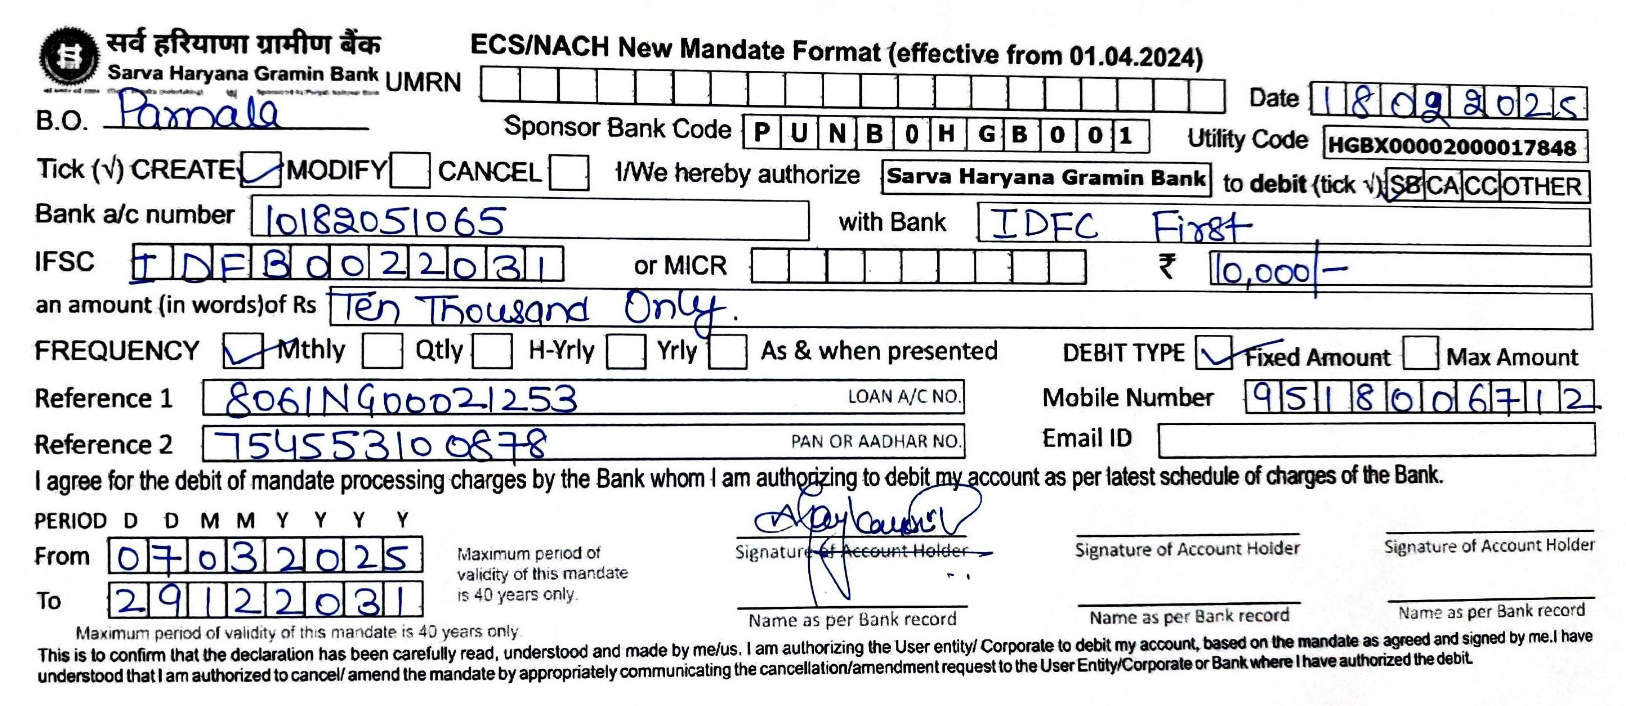 सर्व हरियाणा ग्रामीण बैंक
Sarva Haryana Gramin Bank
ECS/NACH New Mandate Format (effective from 01.04.2024)
UMRN
Date 18022025
B.O. Parnala
Sponsor Bank Code PUNB0HGB001
Utility Code HGBX00002000017848
Tick (√) CREATE MODIFY CANCEL I/We hereby authorize Sarva Haryana Gramin Bank to debit (tick √) SB CA CC OTHER
Bank a/c number 10182051065 with Bank IDFC First
IFSC IDFB0022031 or MICR ₹ 10,000/-
an amount (in words)of Rs Ten Thousand Only.
FREQUENCY Mthly Qtly H-Yrly Yrly As & when presented DEBIT TYPE Fixed Amount Max Amount
Reference 1 8061NG00021253 LOAN A/C NO. Mobile Number 9518006712
Reference 2 754553100878 PAN OR AADHAR NO. Email ID
I agree for the debit of mandate processing charges by the Bank whom I am authorizing to debit my account as per latest schedule of charges of the Bank.
PERIOD D D M M Y Y Y Y
From 07032025
To 29122031
Maximum period of
validity of this mandate
is 40 years only.
Signature of Account Holder Signature of Account Holder Signature of Account Holder
Name as per Bank record Name as per Bank record Name as per Bank record
Maximum period of validity of this mandate is 40 years only.
This is to confirm that the declaration has been carefully read, understood and made by me/us. I am authorizing the User entity/ Corporate to debit my account, based on the mandate as agreed and signed by me.I have
understood that I am authorized to cancel/ amend the mandate by appropriately communicating the cancellation/amendment request to the User Entity/Corporate or Bank where I have authorized the debit.